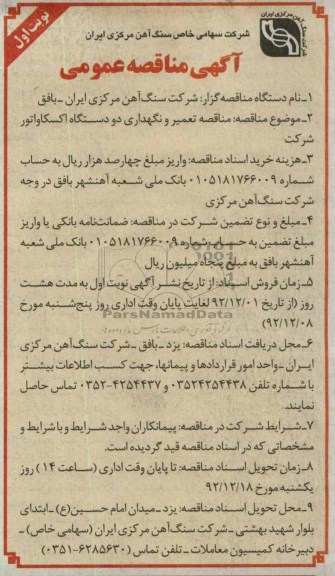 نوبت اول
شرکت سنگ آهن مرکزی ایران
شرکت سهامی خاص سنگ آهن مرکزی ایران
آگهی مناقصه عمومی
۱ـ نام دستگاه مناقصه گزار: شرکت سنگ آهن مرکزی ایران ـ بافق
۲ـ موضوع مناقصه: مناقصه تعمیر و نگهداری دو دستگاه اکسکاواتور
شرکت
۳ـ هزینه خرید اسناد مناقصه: واریز مبلغ چهارصد هزار ریال به حساب
شماره ۰۱۰۵۱۸۱۷۶۶۰۰۹ بانک ملی شعبه آهنشهر بافق در وجه
شرکت سنگ آهن مرکزی
۴ـ مبلغ و نوع تضمین شرکت در مناقصه: ضمانت‌نامه بانکی یا واریز
مبلغ تضمین به حساب شماره ۰۱۰۵۱۸۱۷۶۶۰۰۹ بانک ملی شعبه
آهنشهر بافق به مبلغ پنجاه میلیون ریال
۵ـ زمان فروش اسناد: از تاریخ نشر آگهی نوبت اول به مدت هشت
روز (از تاریخ ۹۲/۱۲/۰۱ لغایت پایان وقت اداری روز پنج‌شنبه مورخ
۹۲/۱۲/۰۸)
ParsNamadData
۶ـ محل دریافت اسناد مناقصه: یزد ـ بافق ـ شرکت سنگ آهن مرکزی
ایران ـ واحد امور قراردادها و پیمانها، جهت کسب اطلاعات بیشتر
با شماره تلفن ۰۳۵۲۴۲۵۴۴۳۸ و ۴۲۵۴۴۳۷-۰۳۵۲ تماس حاصل
نمایند.
۷ـ شرایط شرکت در مناقصه: پیمانکاران واجد شرایط و با شرایط و
مشخصاتی که در اسناد مناقصه قید گردیده است.
۸ـ زمان تحویل اسناد مناقصه: تا پایان وقت اداری (ساعت ۱۴) روز
یکشنبه مورخ ۹۲/۱۲/۱۸
۹ـ محل تحویل اسناد مناقصه: یزد ـ میدان امام حسین(ع) ـ ابتدای
بلوار شهید بهشتی ـ شرکت سنگ آهن مرکزی ایران (سهامی خاص) ـ
دبیرخانه کمیسیون معاملات ـ تلفن تماس (۶۲۸۵۶۳۰-۰۳۵۱)